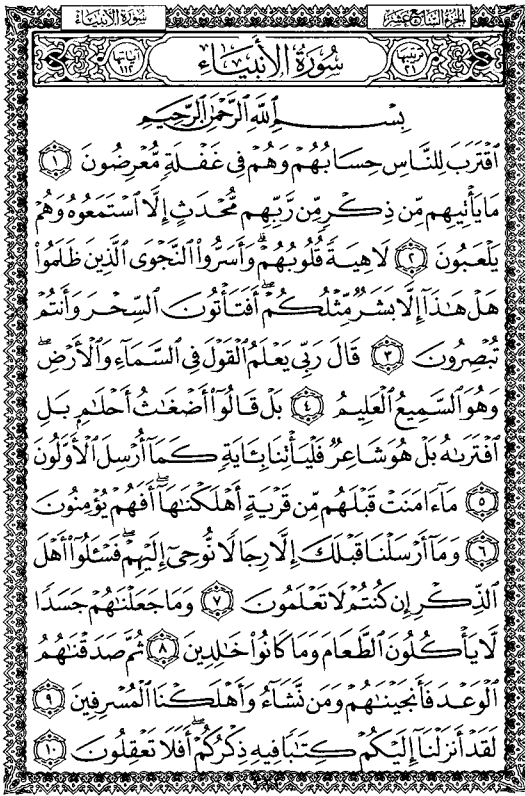 الجزء السابع عشر
سورة الأنبياء
ترتيبها ٢١
سُورَةُ الأَنبِيَاءِ
آياتها ١١٢
بِسْمِ ٱللَّهِ ٱلرَّحْمَٰنِ ٱلرَّحِيمِ
ٱقْتَرَبَ لِلنَّاسِ حِسَابُهُمْ وَهُمْ فِى غَفْلَةٍ مُّعْرِضُونَ ١
مَا يَأْتِيهِم مِّن ذِكْرٍ مِّن رَّبِّهِم مُّحْدَثٍ إِلَّا ٱسْتَمَعُوهُ وَهُمْ
يَلْعَبُونَ ٢ لَاهِيَةً قُلُوبُهُمْ ۗ وَأَسَرُّوا۟ ٱلنَّجْوَى ٱلَّذِينَ ظَلَمُوا۟
هَلْ هَٰذَآ إِلَّا بَشَرٌ مِّثْلُكُمْ ۖ أَفَتَأْتُونَ ٱلسِّحْرَ وَأَنتُمْ
تُبْصِرُونَ ٣ قَالَ رَبِّى يَعْلَمُ ٱلْقَوْلَ فِى ٱلسَّمَآءِ وَٱلْأَرْضِ ۖ
وَهُوَ ٱلسَّمِيعُ ٱلْعَلِيمُ ٤ بَلْ قَالُوٓا۟ أَضْغَٰثُ أَحْلَٰمٍۭ بَلِ
ٱفْتَرَىٰهُ بَلْ هُوَ شَاعِرٌ فَلْيَأْتِنَا بِـَٔايَةٍ كَمَآ أُرْسِلَ ٱلْأَوَّلُونَ
٥ مَآ ءَامَنَتْ قَبْلَهُم مِّن قَرْيَةٍ أَهْلَكْنَٰهَآ ۖ أَفَهُمْ يُؤْمِنُونَ
٦ وَمَآ أَرْسَلْنَا قَبْلَكَ إِلَّا رِجَالًا نُّوحِىٓ إِلَيْهِمْ ۖ فَسْـَٔلُوٓا۟ أَهْلَ
ٱلذِّكْرِ إِن كُنتُمْ لَا تَعْلَمُونَ ٧ وَمَا جَعَلْنَٰهُمْ جَسَدًا
لَّا يَأْكُلُونَ ٱلطَّعَامَ وَمَا كَانُوا۟ خَٰلِدِينَ ٨ ثُمَّ صَدَقْنَٰهُمُ
ٱلْوَعْدَ فَأَنجَيْنَٰهُمْ وَمَن نَّشَآءُ وَأَهْلَكْنَا ٱلْمُسْرِفِينَ ٩
لَقَدْ أَنزَلْنَآ إِلَيْكُمْ كِتَٰبًا فِيهِ ذِكْرُكُمْ ۖ أَفَلَا تَعْقِلُونَ ١٠